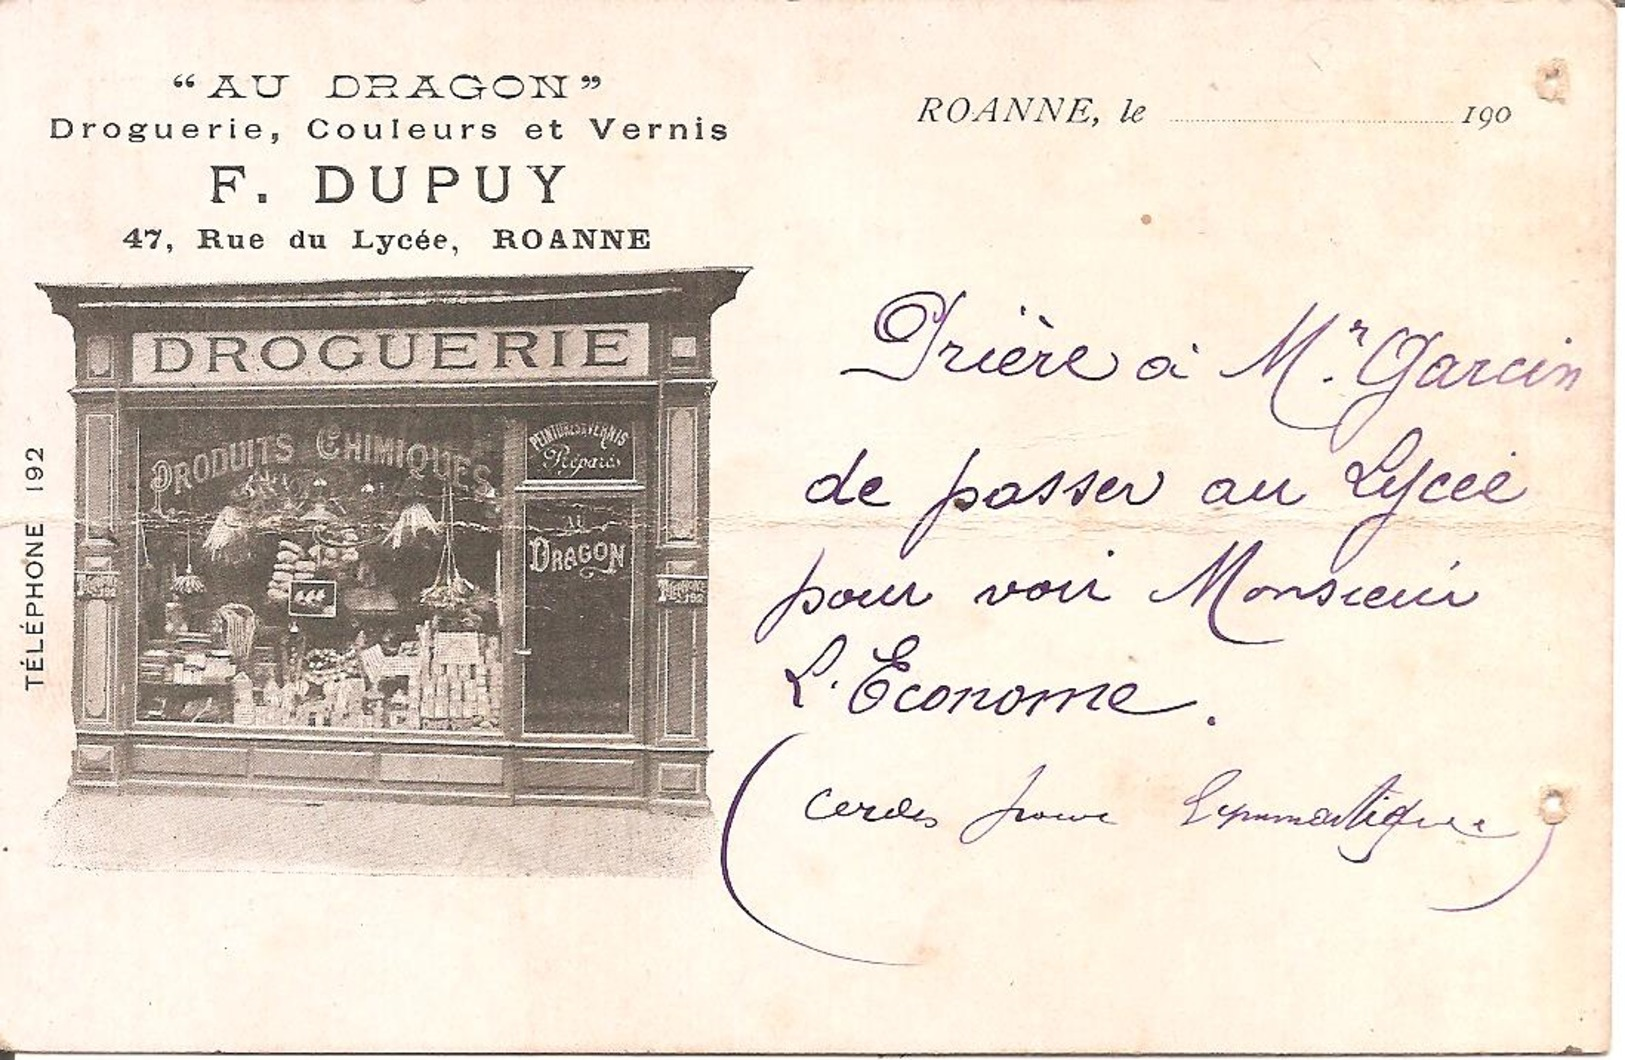 “AU DRAGON”
Droguerie, Couleurs et Vernis
F. DUPUY
47, Rue du Lycée, ROANNE
TÉLÉPHONE 192
DROGUERIE
PRODUITS CHIMIQUES
PEINTURES & VERNIS
Préparés
AU
DRAGON
ROANNE, le 190
Prière à Mr. Garcin
de passer au Lycée
pour voir Monsieur
L'Econome.
(cordes pour gymnastique)